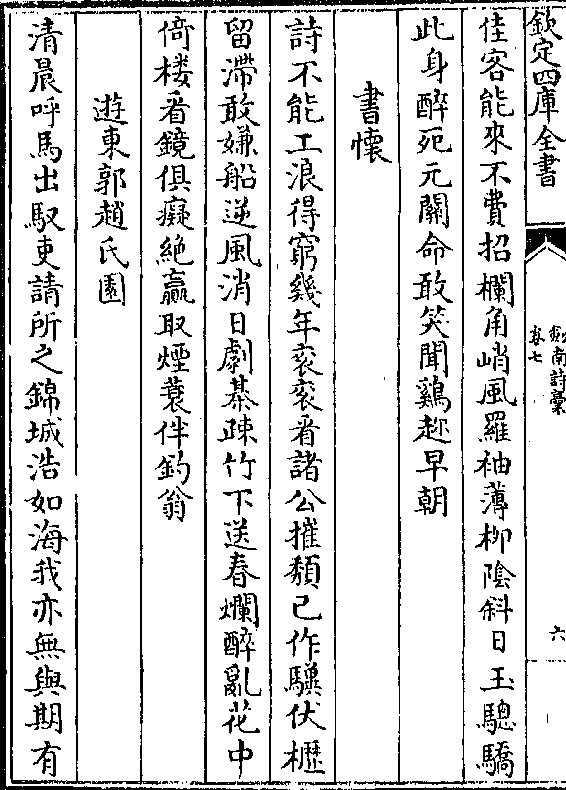 欽定四庫全書
劍南詩稾
卷七
六
佳客能來不費招欄角峭風羅袖薄柳陰斜日玉驄驕
此身醉死元關命敢笑聞鷄趂早朝
書懷
詩不能工浪得窮幾年衮衮看諸公摧頽已作驥伏櫪
留滯敢嫌船逆風消日劇棊疎竹下送春爛醉亂花中
倚楼看鏡俱癡絶贏取煙蓑伴釣翁
遊東郭趙氏園
清晨呼馬出馭吏請所之錦城浩如海我亦無與期有